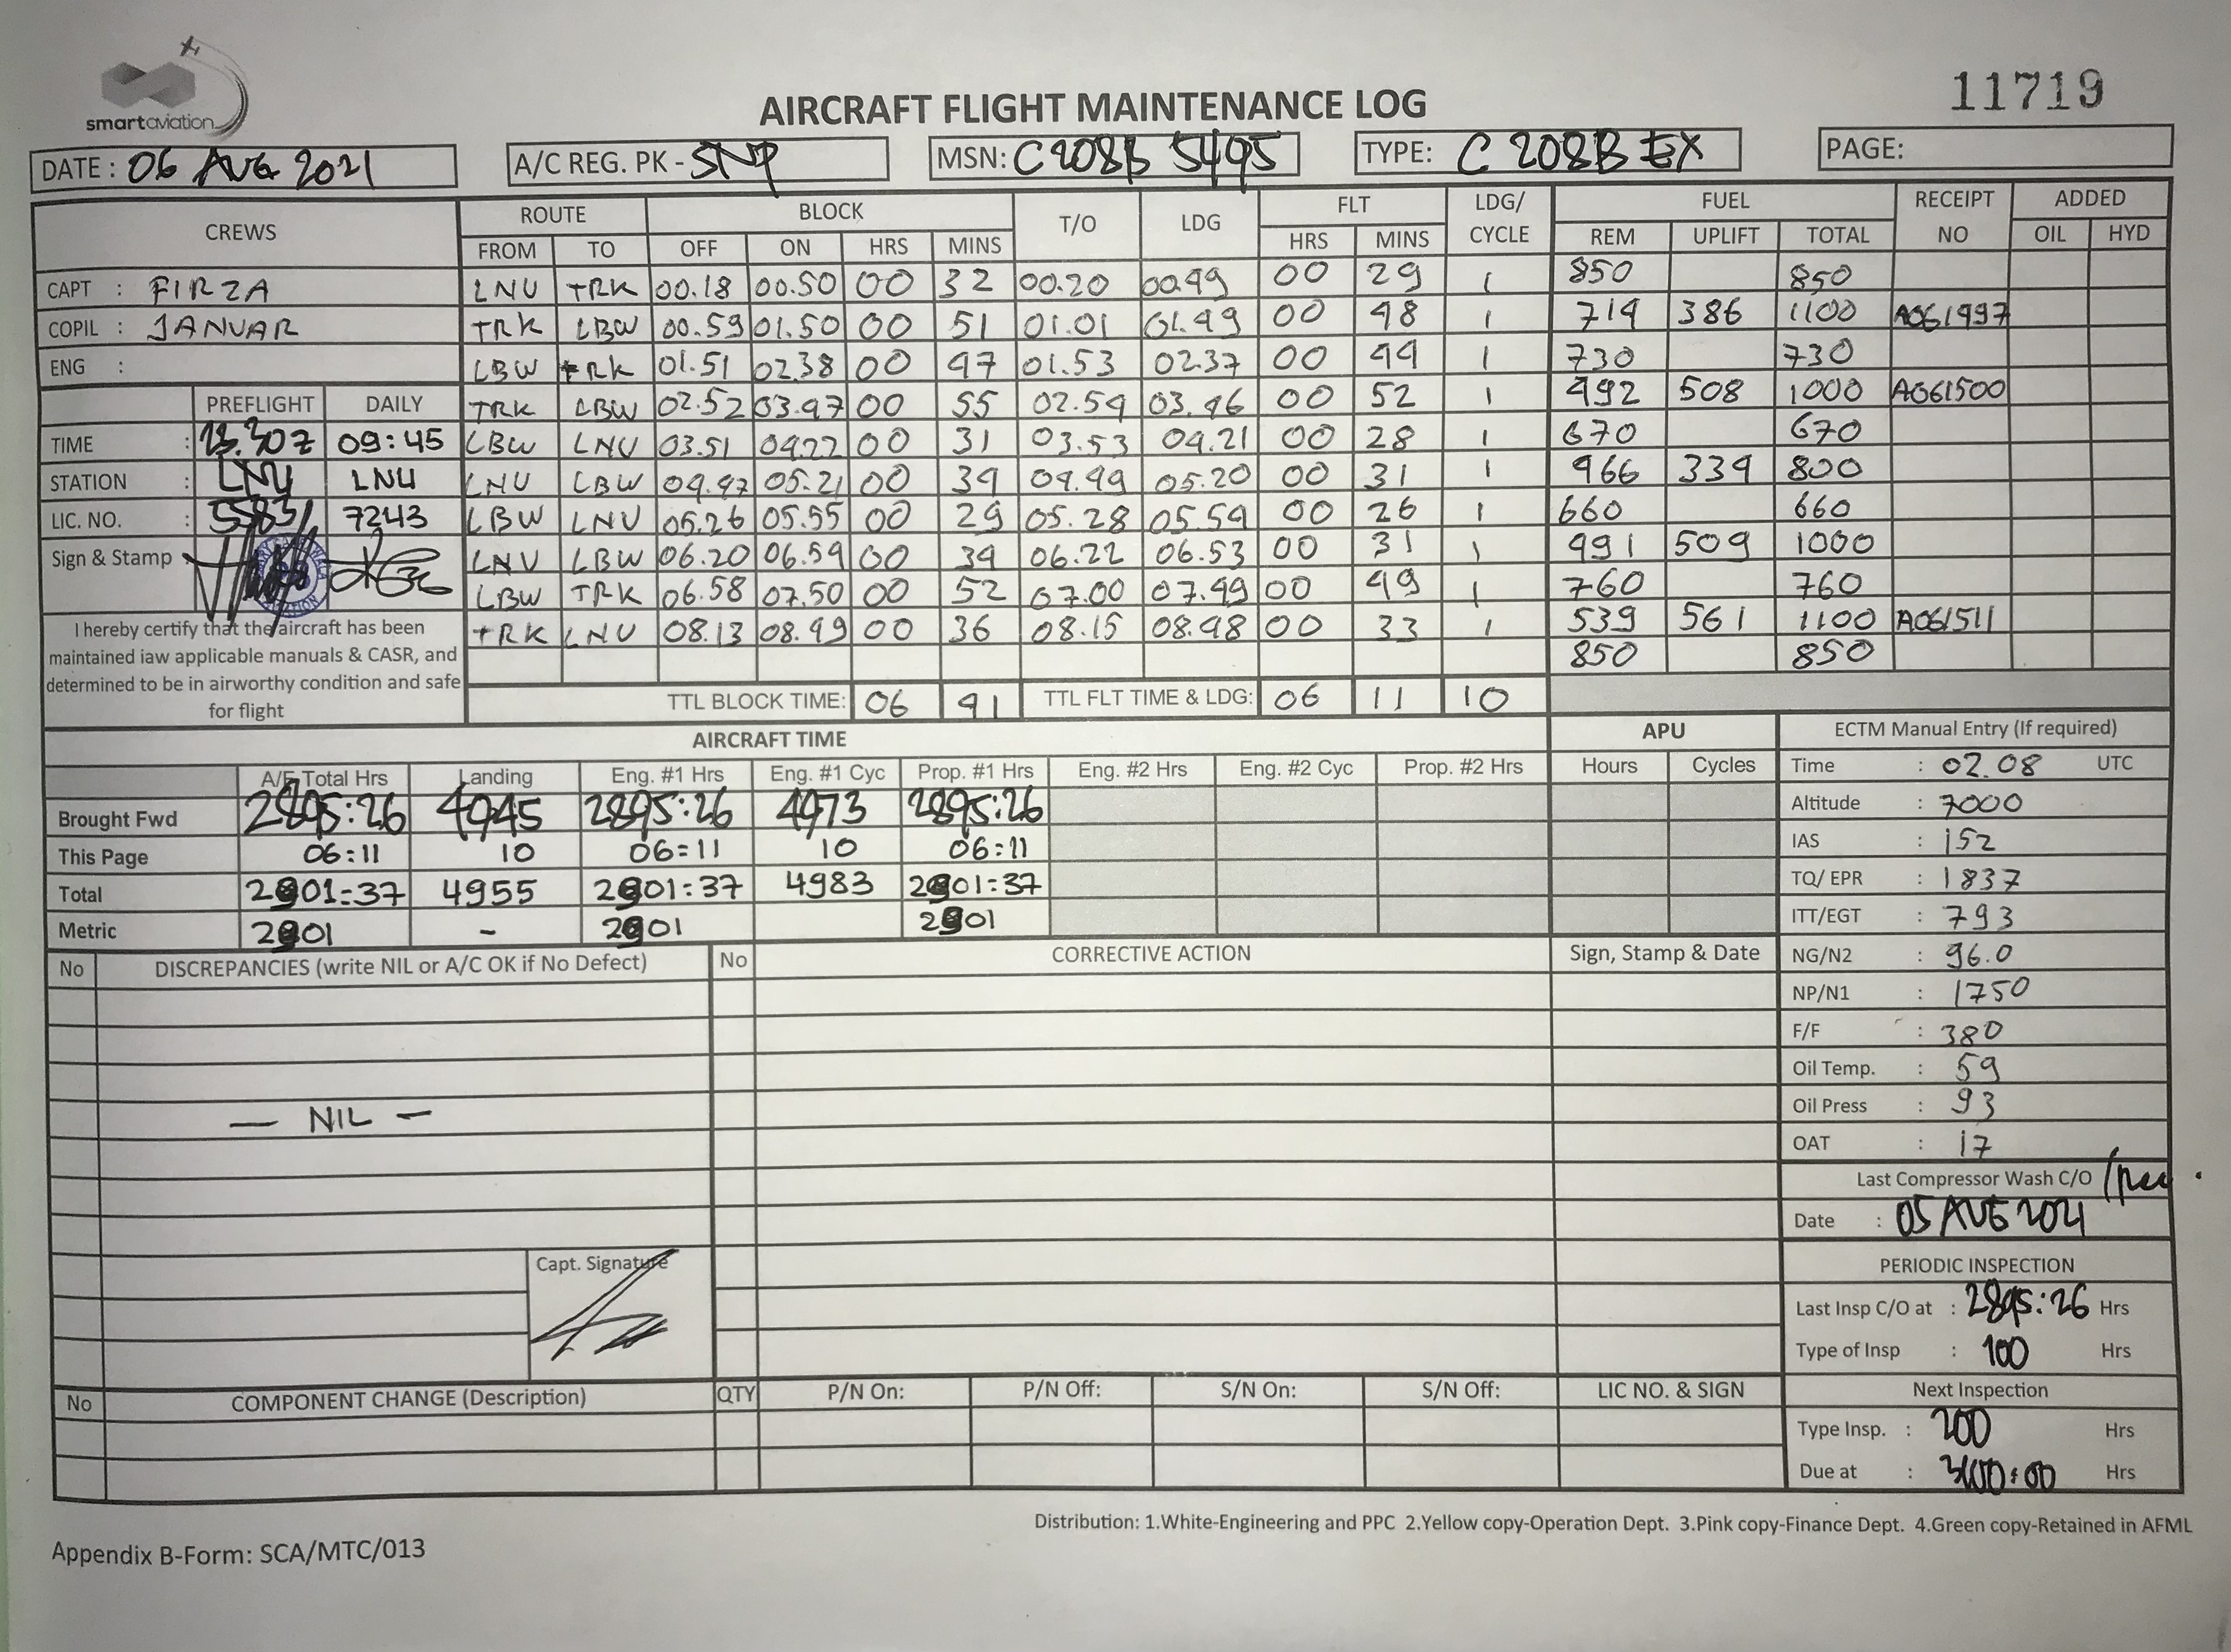 smartaviation
AIRCRAFT FLIGHT MAINTENANCE LOG
11719
DATE : 06 AUG 2021 A/C REG. PK - SNP MSN: C208B 5495 TYPE: C 208B EX PAGE:
CREWS ROUTE BLOCK T/O LDG FLT LDG/ CYCLE FUEL RECEIPT NO ADDED
FROM TO OFF ON HRS MINS HRS MINS REM UPLIFT TOTAL OIL HYD
CAPT : FIRZA LNU TRK 00.18 00.50 00 32 00.20 00.49 00 29 1 850 850
COPIL : JANUAR TRK LBW 00.59 01.50 00 51 01.01 01.49 00 48 1 714 386 1100 A061497
ENG : LBW TRK 01.51 02.38 00 47 01.53 02.37 00 44 1 730 730
PREFLIGHT DAILY TRK LBW 02.52 03.47 00 55 02.54 03.46 00 52 1 492 508 1000 A061500
TIME : 09:45 LBW LNU 03.51 04.22 00 31 03.53 04.21 00 28 1 670 670
STATION : LNU LNU LNU LBW 04.47 05.21 00 34 04.49 05.20 00 31 1 466 334 800
LIC. NO. : 7243 LBW LNU 05.26 05.55 00 29 05.28 05.54 00 26 1 660 660
Sign & Stamp LNU LBW 06.20 06.54 00 34 06.22 06.53 00 31 1 491 509 1000
LBW TRK 06.58 07.50 00 52 07.00 07.49 00 49 1 760 760
TRK LNU 08.13 08.49 00 36 08.15 08.48 00 33 1 539 561 1100 A061511
850 850
I hereby certify that the aircraft has been
maintained iaw applicable manuals & CASR, and
determined to be in airworthy condition and safe
for flight
TTL BLOCK TIME: 06 41 TTL FLT TIME & LDG: 06 11 10
AIRCRAFT TIME APU
A/F Total Hrs Landing Eng. #1 Hrs Eng. #1 Cyc Prop. #1 Hrs Eng. #2 Hrs Eng. #2 Cyc Prop. #2 Hrs Hours Cycles
Brought Fwd 2895:26 4945 2895:26 4973 2895:26
This Page 06:11 10 06:11 10 06:11
Total 2901:37 4955 2901:37 4983 2901:37
Metric 2901 - 2901 2901
ECTM Manual Entry (If required)
Time : 02.08 UTC
Altitude : 7000
IAS : 152
TQ/ EPR : 1837
ITT/EGT : 793
NG/N2 : 96.0
NP/N1 : 1750
F/F : 380
Oil Temp. : 59
Oil Press : 93
OAT : 17
Last Compressor Wash C/O
Date : 05 AUG 2021
PERIODIC INSPECTION
Last Insp C/O at : 2895:26 Hrs
Type of Insp : 100 Hrs
Next Inspection
Type Insp. : 200 Hrs
Due at : Hrs
No DISCREPANCIES (write NIL or A/C OK if No Defect) No CORRECTIVE ACTION Sign, Stamp & Date
— NIL —
Capt. Signature
No COMPONENT CHANGE (Description) QTY P/N On: P/N Off: S/N On: S/N Off: LIC NO. & SIGN
Distribution: 1.White-Engineering and PPC 2.Yellow copy-Operation Dept. 3.Pink copy-Finance Dept. 4.Green copy-Retained in AFML
Appendix B-Form: SCA/MTC/013